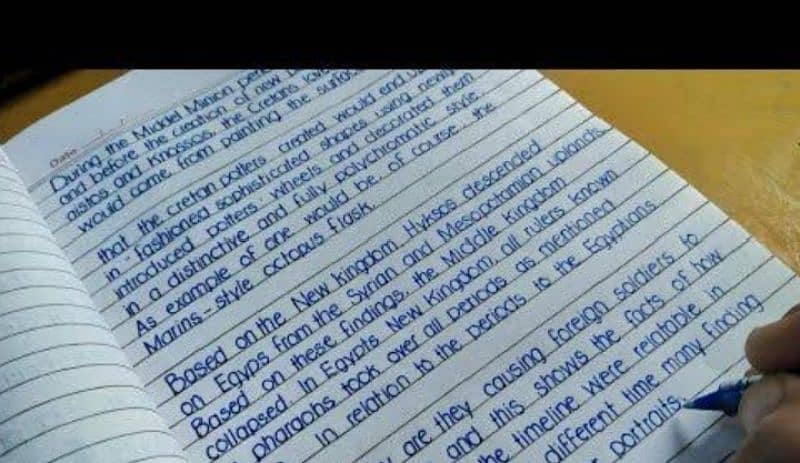 Date
During the Middel Minion
and before the creation of new
aistos and Knossos, the Cretans
would come from painting the surface
that the cretan potters created would end up
in - fashioned sophisticated shapes using newly
introduced potters' wheels and decorated them
in a distinctive and fully polychromatic style.
As example of one would be, of course, the
Marins - style octopus flask.
Based on the New kingdom, Hyksos descended
on Egyps from the Syrian and Mesopotamian uplands.
Based on these findings, the Middle kingdom
collapsed. In Egypts New Kingdom, all rulers known
pharaohs took over all periods as mentioned
in relation to the periods to the Egyptians
are they causing foreign soldiers to
and this shows the facts of how
the timeline were relatable in
different time many finding
portraits.